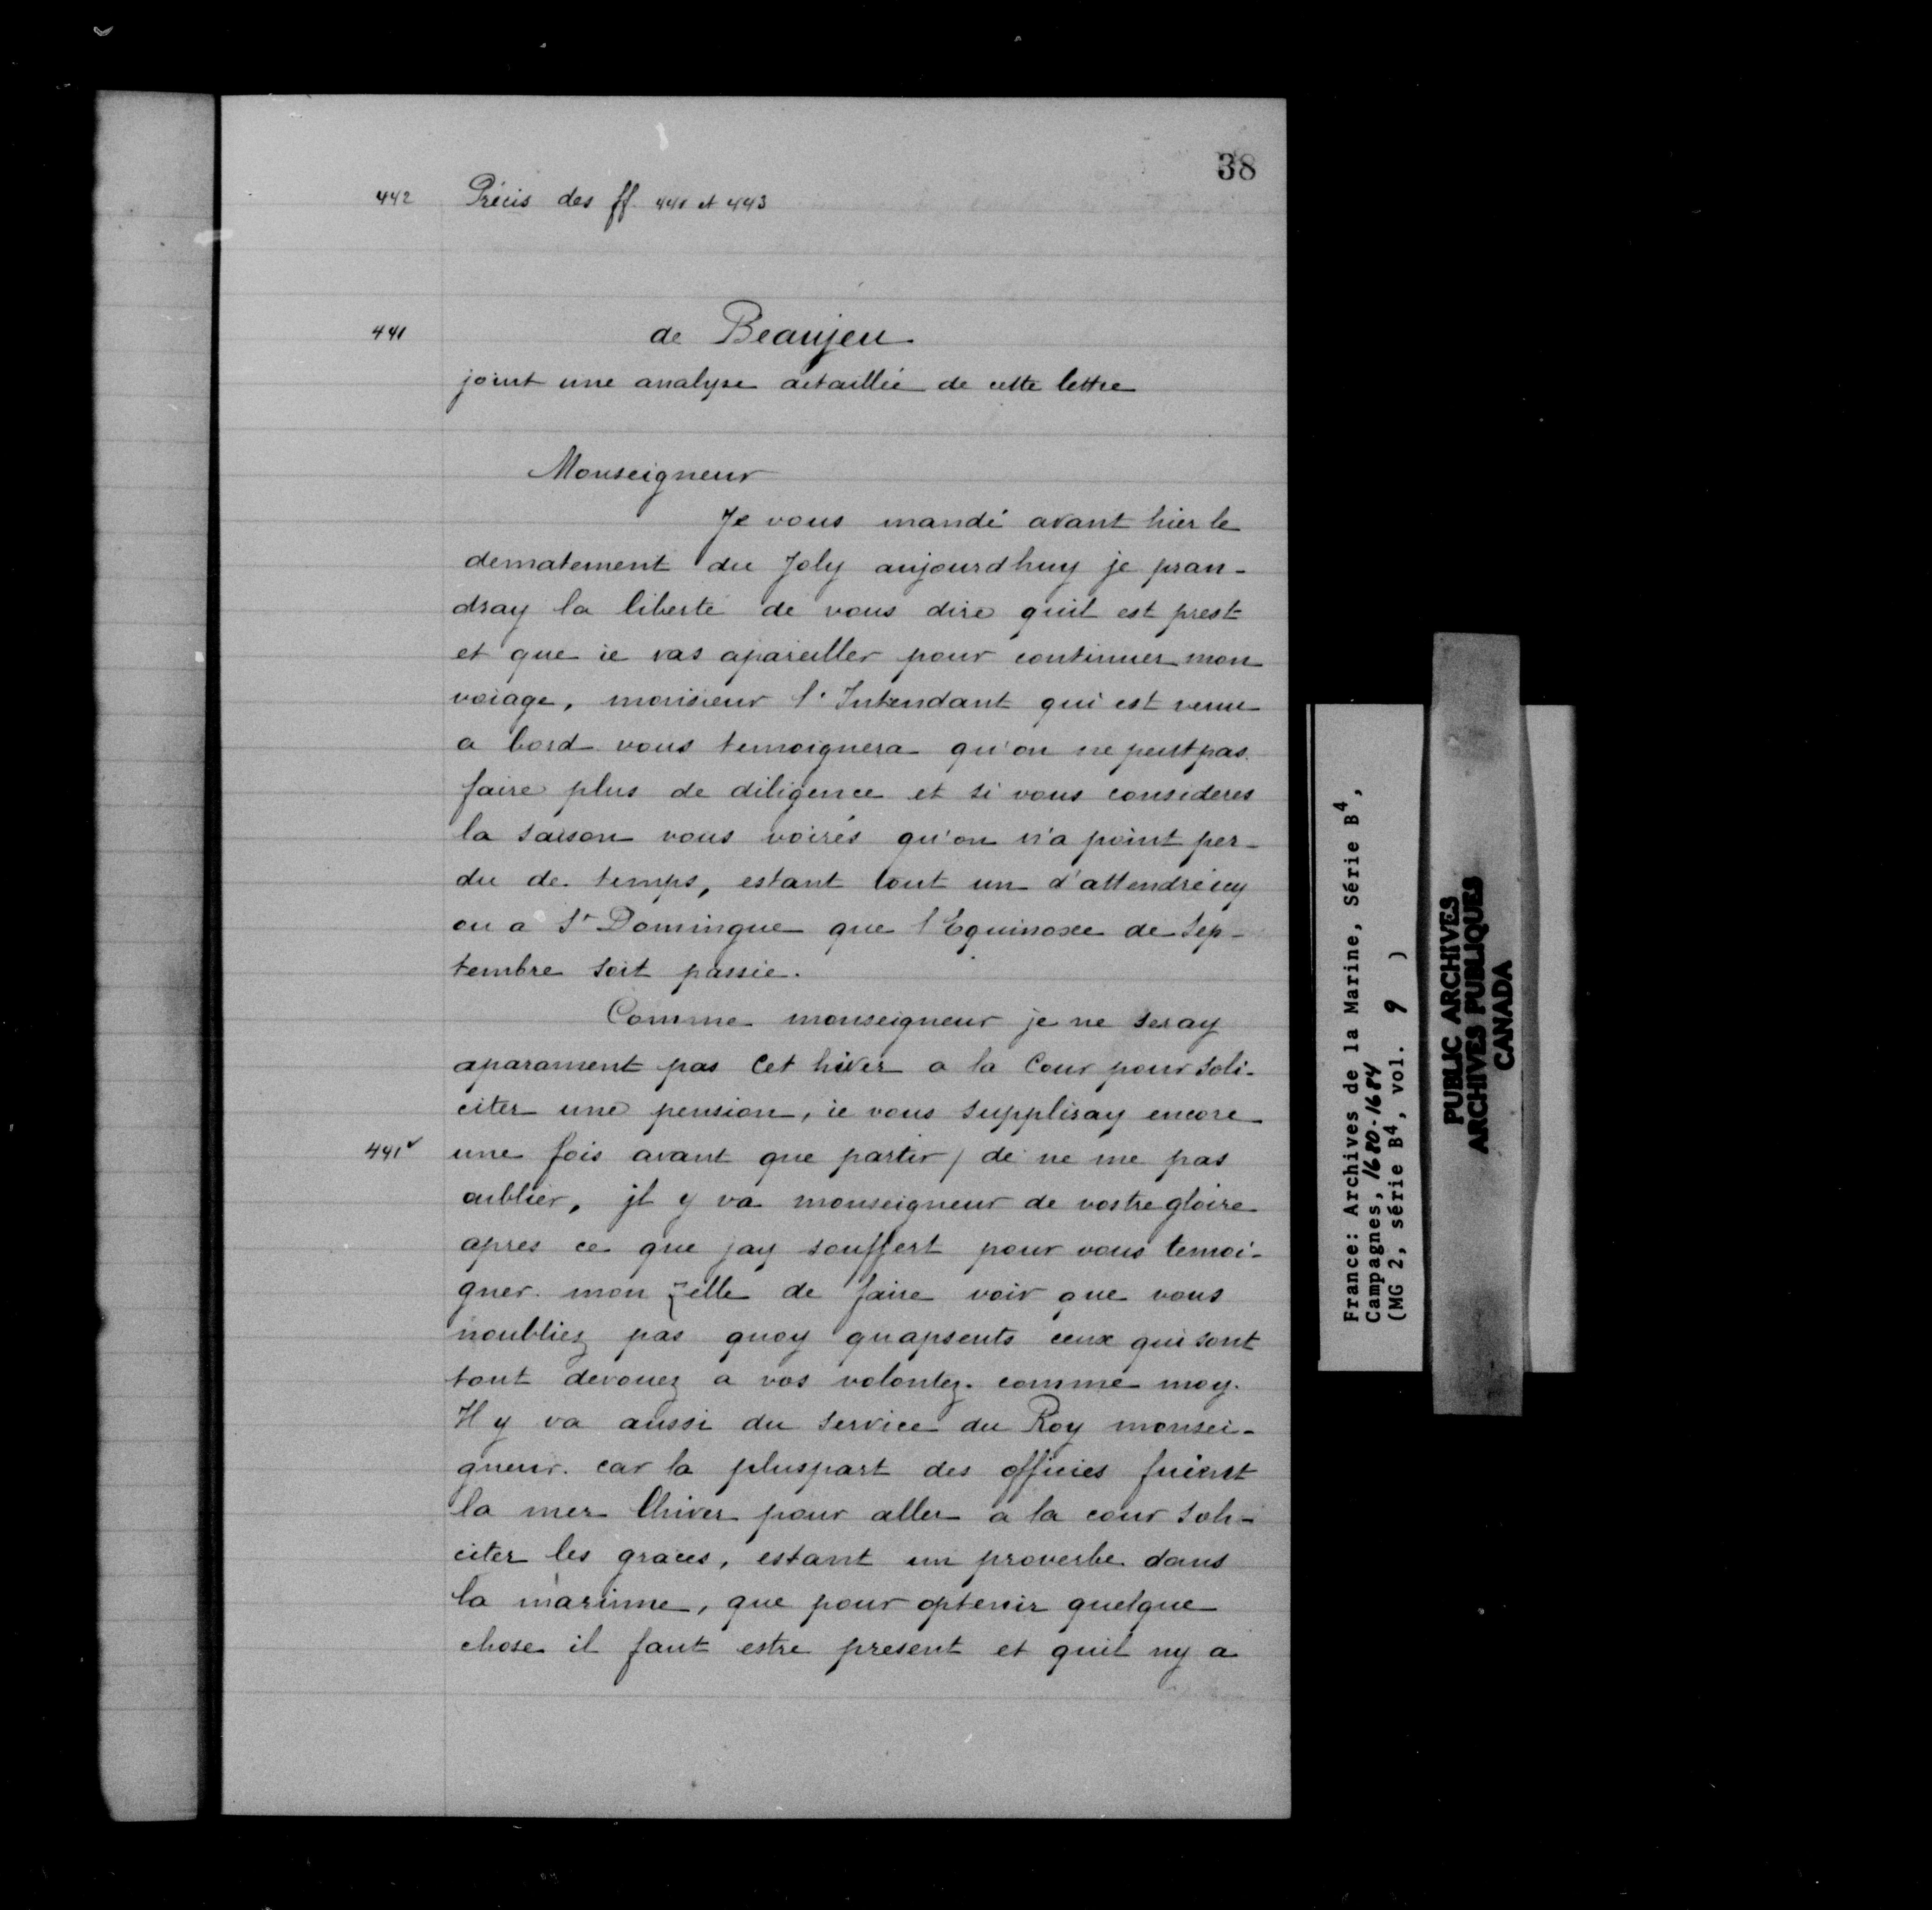 38
442 Précis des ff. 441 et 443
441 de Beaujeu
joint une analyse detaillée de cette lettre
Monseigneur
Je vous mandé avant hier le
dematement du Joly aujourdhuy je pran-
dray la liberté de vous dire quil est prest
et que ie vas apareiller pour continuer mon
voiage, monsieur l'Intendant qui est venu
a bord vous temoignera qu'on ne peut pas
faire plus de diligence et si vous consideres
la saison vous voirés qu'on n'a point per-
du de temps, estant tout un d'attendre icy
ou a St Domingue que l'Equinoxe de Sep-
tembre soit passée.
Comme monseigneur je ne seray
aparament pas cet hiver a la Cour pour soli-
citer une pension, ie vous suppliray encore
441v une fois avant que partir / de ne me pas
oublier, jl y va monseigneur de vostre gloire
apres ce que jay souffert pour vous temoi-
gner mon zelle de faire voir que vous
noubliez pas quoy quapsents ceux qui sont
tout devouez a vos volontez comme moy.
Il y va aussi du service du Roy monsei-
gneur. car la pluspart des officies fuient
la mer lhiver pour aller a la cour soli-
citer les graces, estant un proverbe dans
la marinne, que pour optenir quelque
chose il faut estre present et quil ny a
France: Archives de la Marine, Série B4,
Campagnes, 1680-1684
(MG 2, série B4, vol. 9 )
PUBLIC ARCHIVES
ARCHIVES PUBLIQUES
CANADA